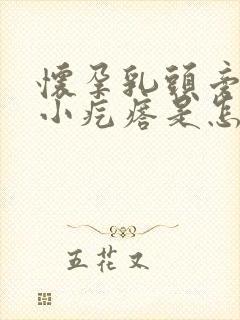 懷孕乳頭旁
小疙瘩是怎
五花又